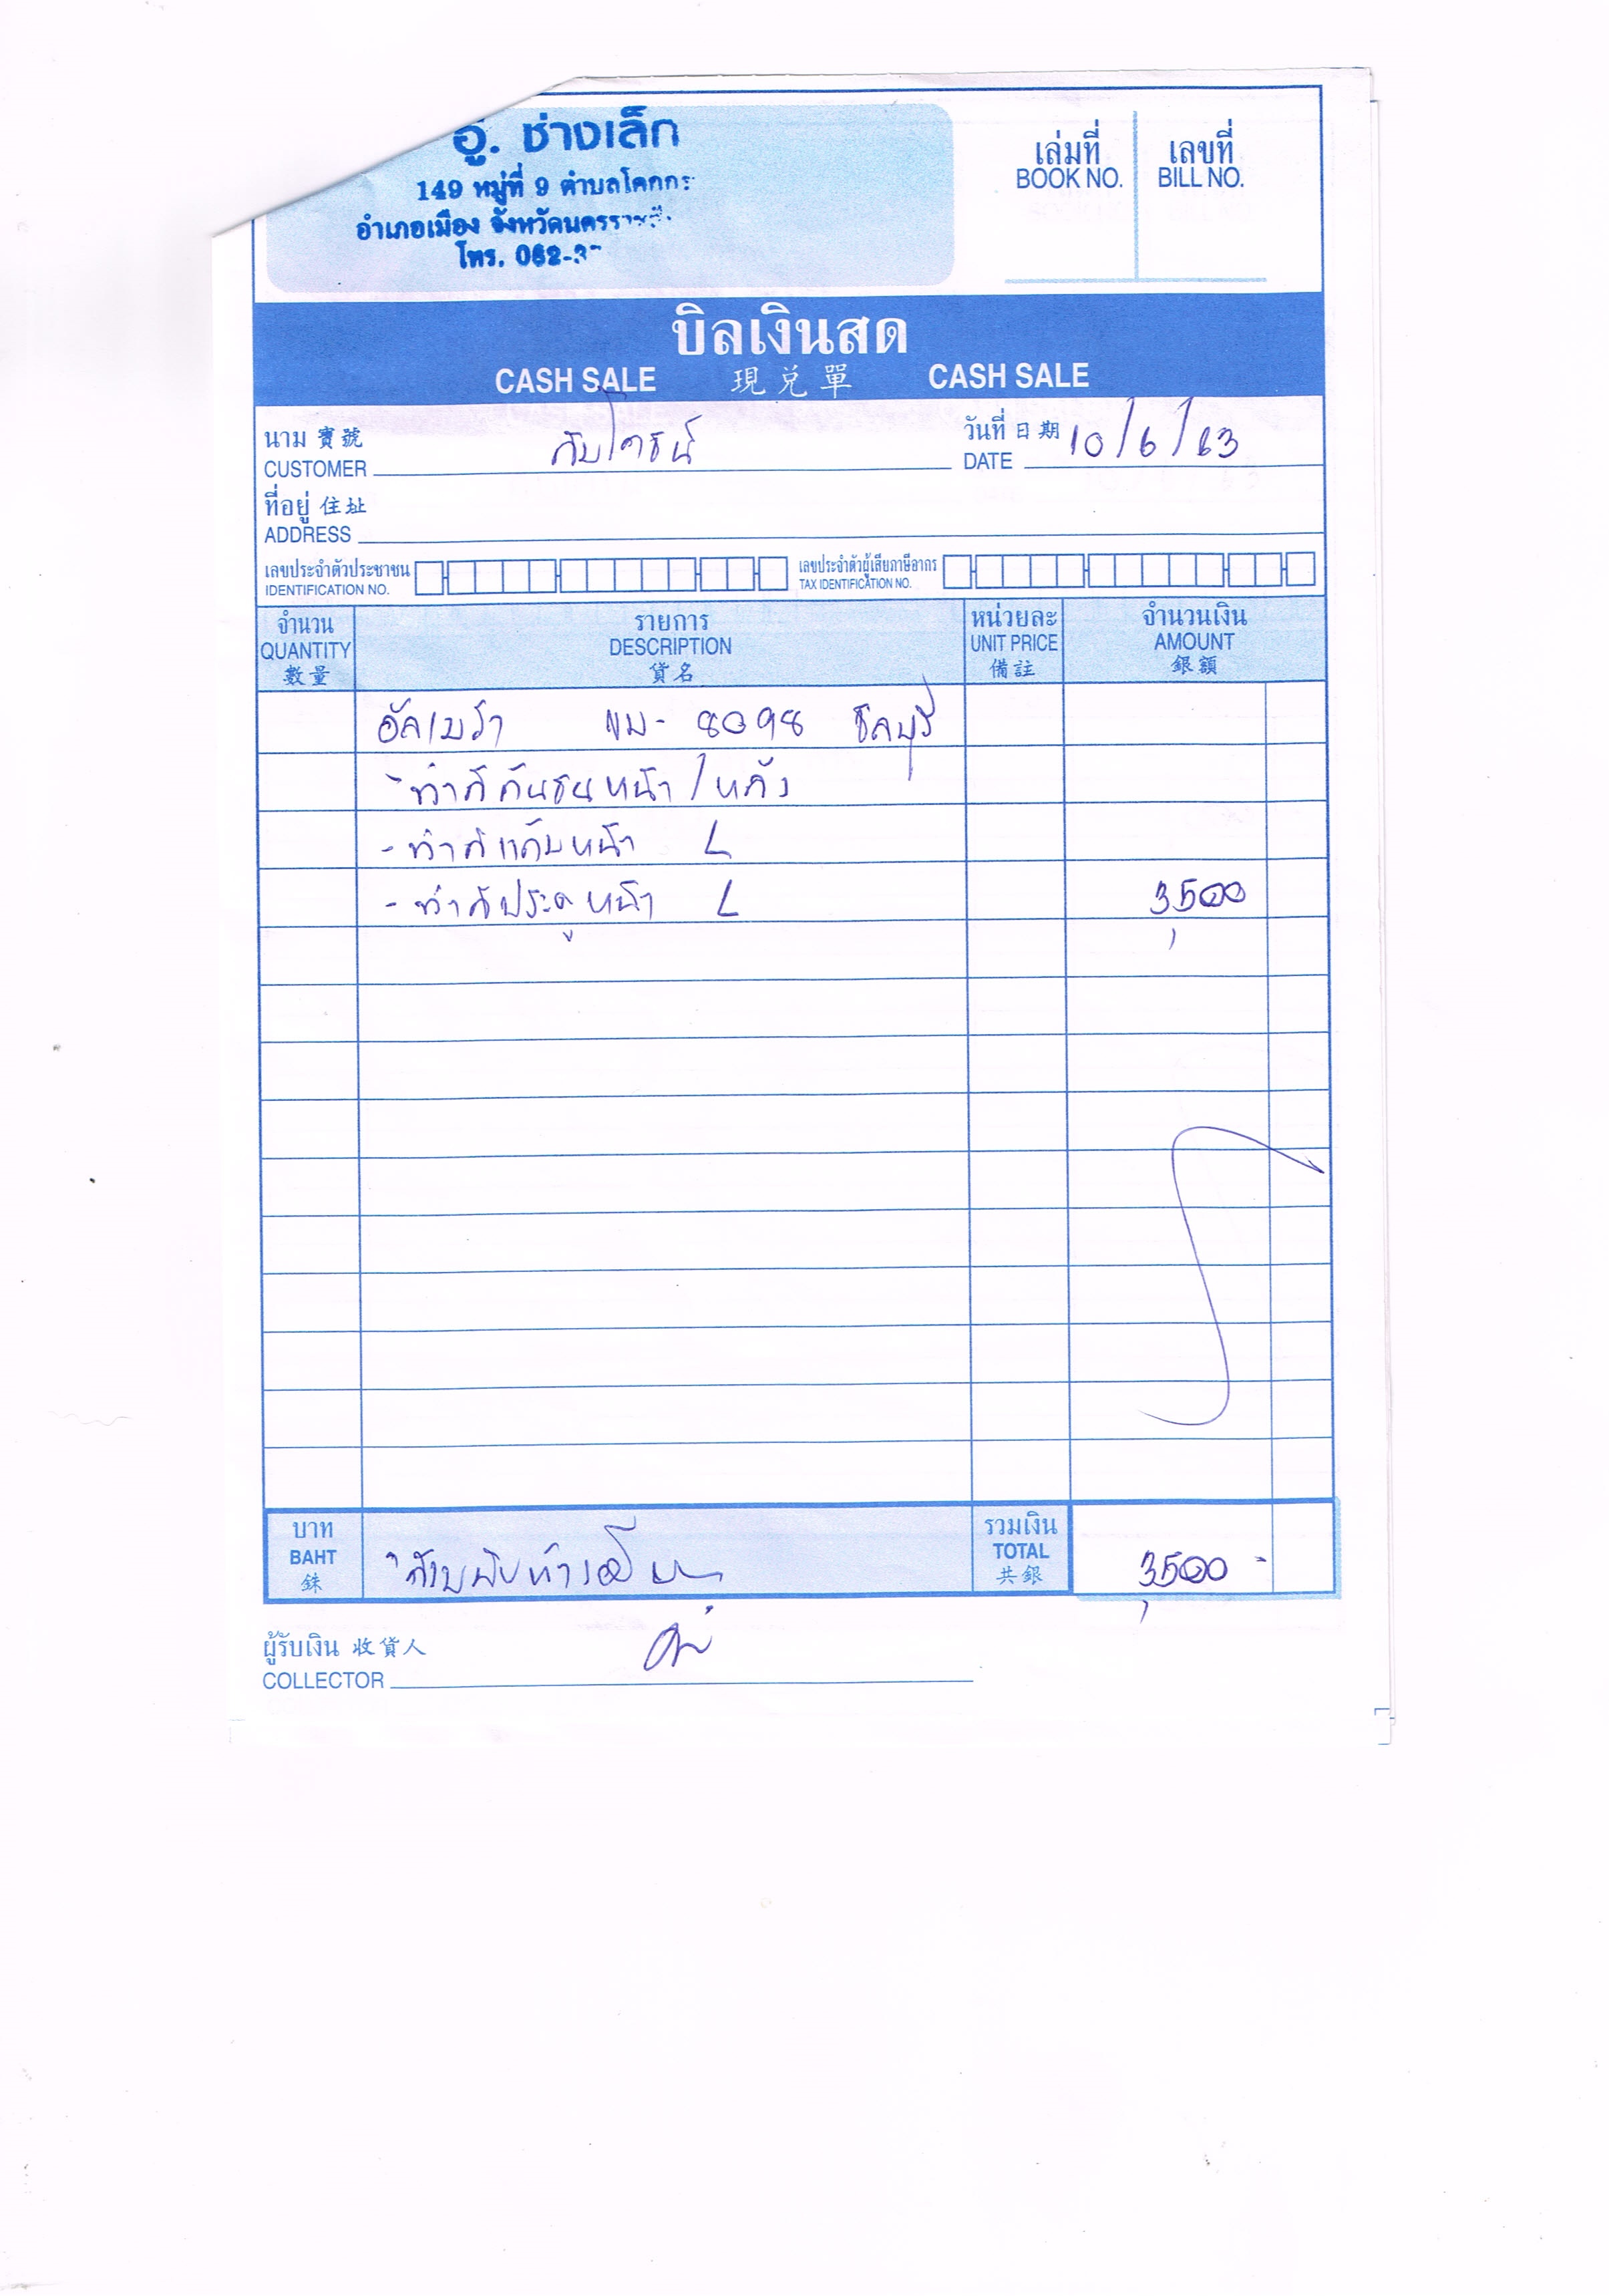 อู่. ช่างเล็ก
149 หมู่ที่ 9 ตำบลโคกกร
อำเภอเมือง จังหวัดนครราชสี
โทร. 062-3
เล่มที่ เลขที่
BOOK NO. BILL NO.
บิลเงินสด
CASH SALE 現兌單 CASH SALE
นาม 寶號 วันที่ 日期 10/6/63
CUSTOMER DATE
ที่อยู่ 住址
ADDRESS
เลขประจำตัวประชาชน เลขประจำตัวผู้เสียภาษีอากร
IDENTIFICATION NO. TAX IDENTIFICATION NO.
จำนวน รายการ หน่วยละ จำนวนเงิน
QUANTITY DESCRIPTION UNIT PRICE AMOUNT
數量 貨名 備註 銀額
อัลเมร่า ขม- 8098 ชลบุรี
- ทำสีกันชนหน้า/หลัง
- ทำสีแก้มหน้า L
- ทำสีประตูหน้า L 3,500
บาท รวมเงิน
BAHT สามพันห้าร้อย TOTAL 3,500 -
銖 共銀
ผู้รับเงิน 收貨人
COLLECTOR